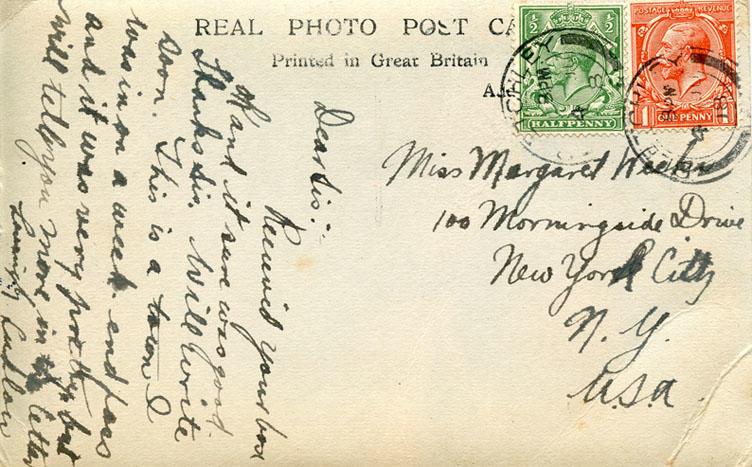 REAL PHOTO POST CA
Printed in Great Britain
½ ½
HALFPENNY
POSTAGE REVENUE
1 ONE PENNY
8 PM
18
Dear Sis:-
Received your box
OK and it sure was good
Thanks Sis. Will write
soon. This is a town I
was in on a week end pass
and it was very pretty but
will tell you more in letter
Lovingly Ludlow
Miss Margaret
100 Morningside Drive
New York City
N.Y.
U.S.A.